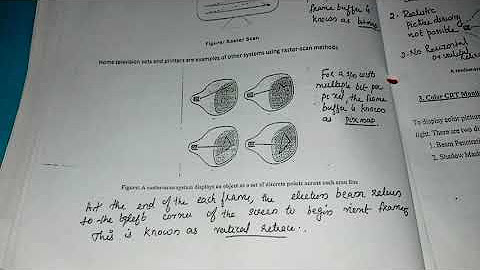 frame buffer is
known as bitmap
Figure: Raster Scan
Home television sets and printers are examples of other systems using raster-scan methods
For a s/m with
multiple bit per
pixel, the frame
buffer is known
as pixmap
Figure: A raster-scan system displays an object as a set of discrete points across each scan line
At the end of the each frame, the electron beam returns
to the top left corner of the screen to begin next frame
This is known as vertical retrace.
2. Realistic
picture drawing
not possible
3. No horizontal
or vertical
retrace
3. Color CRT Moni
To display color pictur
light. There are two di
1. Beam Penetrati
2. Shadow Mask